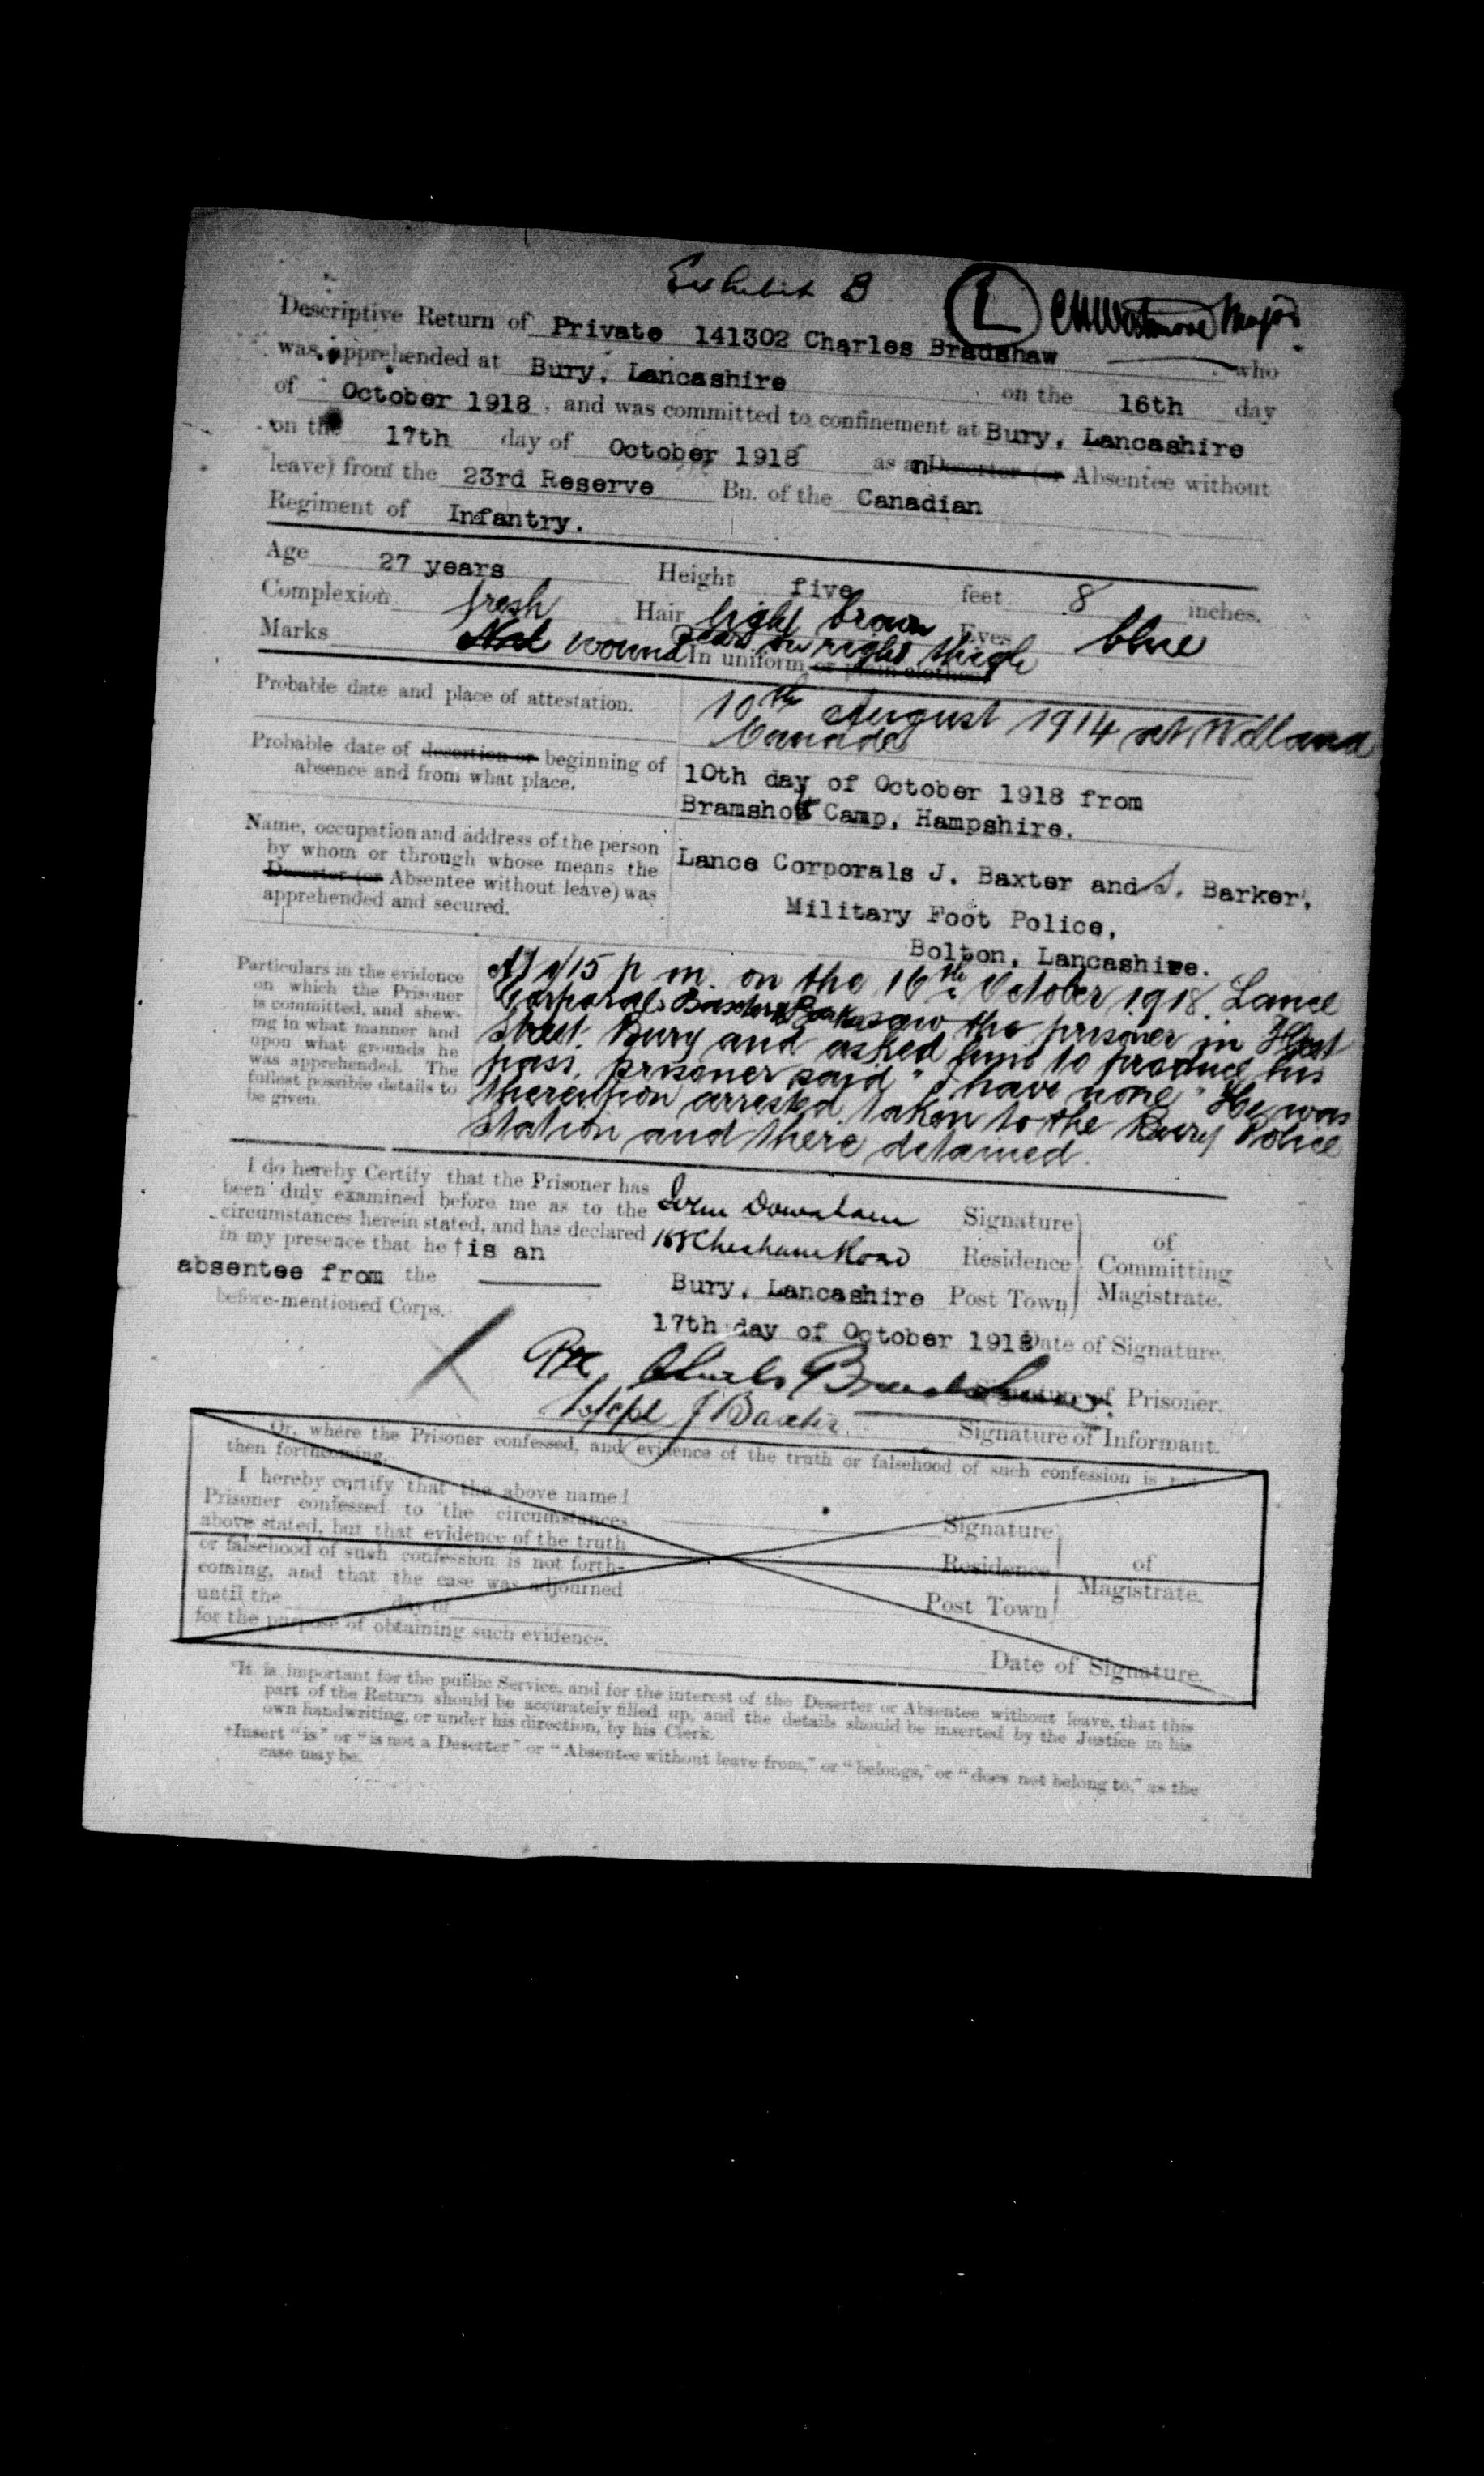 Exhibit B L Major
Descriptive Return of Private 141302 Charles Bradshaw who
was apprehended at Bury, Lancashire on the 16th day
of October 1918, and was committed to confinement at Bury, Lancashire
on the 17th day of October 1918 as an Deserter (or Absentee without
leave) from the 23rd Reserve Bn. of the Canadian
Regiment of Infantry.
Age 27 years Height five feet 8 inches.
Complexion fresh Hair light brown Eyes blue
Marks wound scar on right thigh
In uniform or plain clothes
Probable date and place of attestation. 10th August 1914 at Welland
Canada
Probable date of desertion or beginning of
absence and from what place.
10th day of October 1918 from
Bramshott Camp, Hampshire.
Name, occupation and address of the person
by whom or through whose means the
Deserter (or Absentee without leave) was
apprehended and secured.
Lance Corporals J. Baxter and S. Barker,
Military Foot Police,
Bolton, Lancashire.
Particulars in the evidence
on which the Prisoner
is committed, and shew-
ing in what manner and
upon what grounds he
was apprehended. The
fullest possible details to
be given.
At 1/15 p m. on the 16th October 1918. Lance
Corporals Baxter & Barker saw the prisoner in
Street. Bury and asked him to produce his
pass, prisoner said "I have none" He was
thereupon arrested taken to the Bury Police
Station and there detained.
I do hereby Certify that the Prisoner has
been duly examined before me as to the
circumstances herein stated, and has declared
in my presence that he † is an
absentee from the
before-mentioned Corps.
Signature
Chesham Road Residence
Bury, Lancashire Post Town
of
Committing
Magistrate.
17th day of October 1918 Date of Signature.
Pte Charles Bradshaw. Signature of Prisoner.
L/cpl J Baxter Signature of Informant.
Or, where the Prisoner confessed, and evidence of the truth or falsehood of such confession is not
then forthcoming.
I hereby certify that the above named
Prisoner confessed to the circumstances
above stated, but that evidence of the truth
or falsehood of such confession is not forth-
coming, and that the case was adjourned
until the day of
for the purpose of obtaining such evidence.
Signature
Residence
Post Town
of
Magistrate.
Date of Signature.
*It is important for the public Service, and for the interest of the Deserter or Absentee without leave, that this
part of the Return should be accurately filled up, and the details should be inserted by the Justice in his
own handwriting, or under his direction, by his Clerk.
†Insert "is" or "is not a Deserter" or "Absentee without leave from," or "belongs," or "does not belong to," as the
case may be.